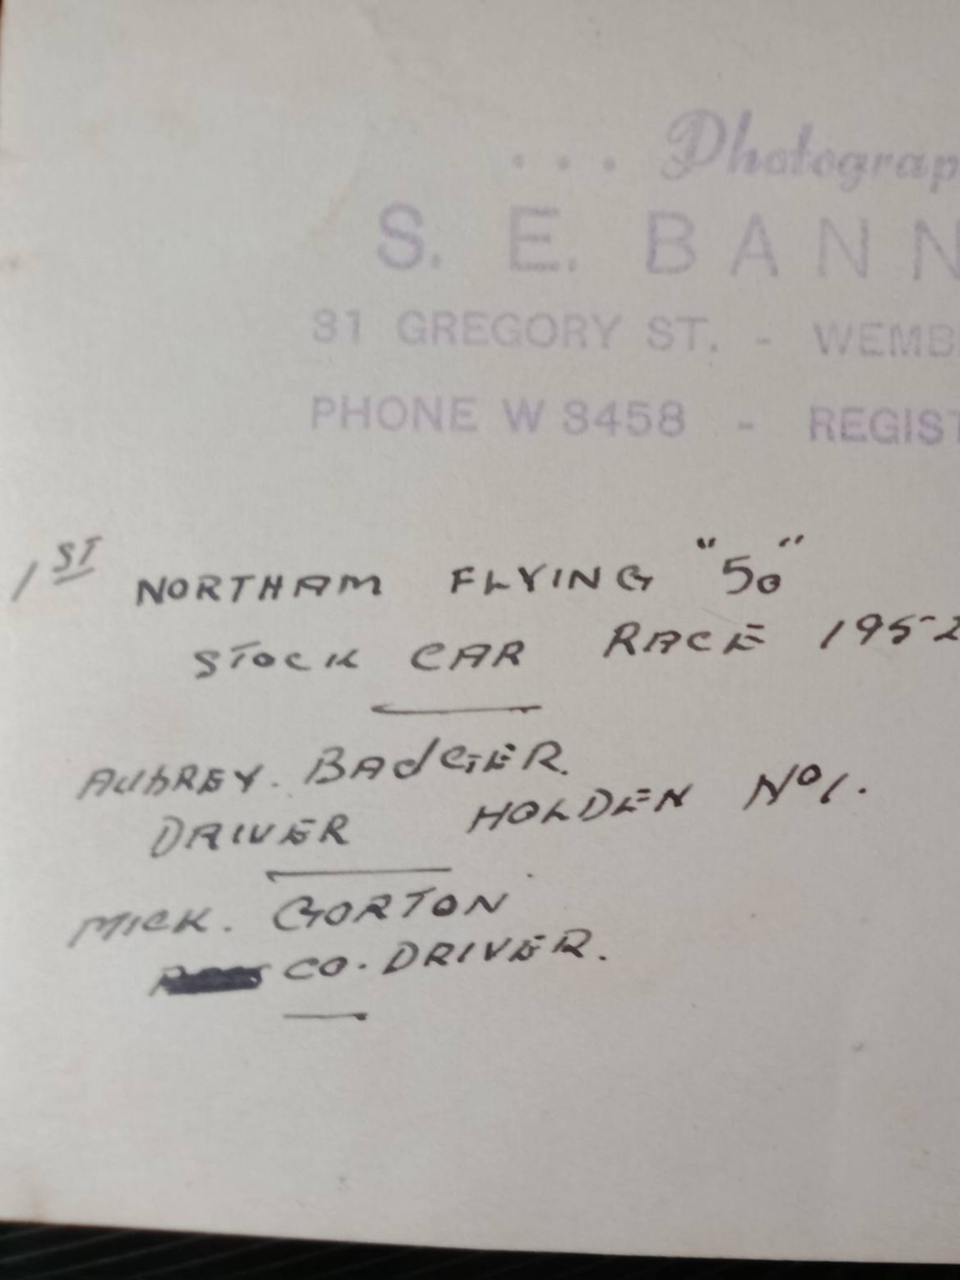 ... Photograp
S. E. BANN
31 GREGORY ST. - WEMB
PHONE W 3458 - REGIST
1ST NORTHAM FLYING "50"
STOCK CAR RACE 1952
AUBREY. BADGER.
DRIVER HOLDEN No1.
MICK. GORTON
CO-DRIVER.